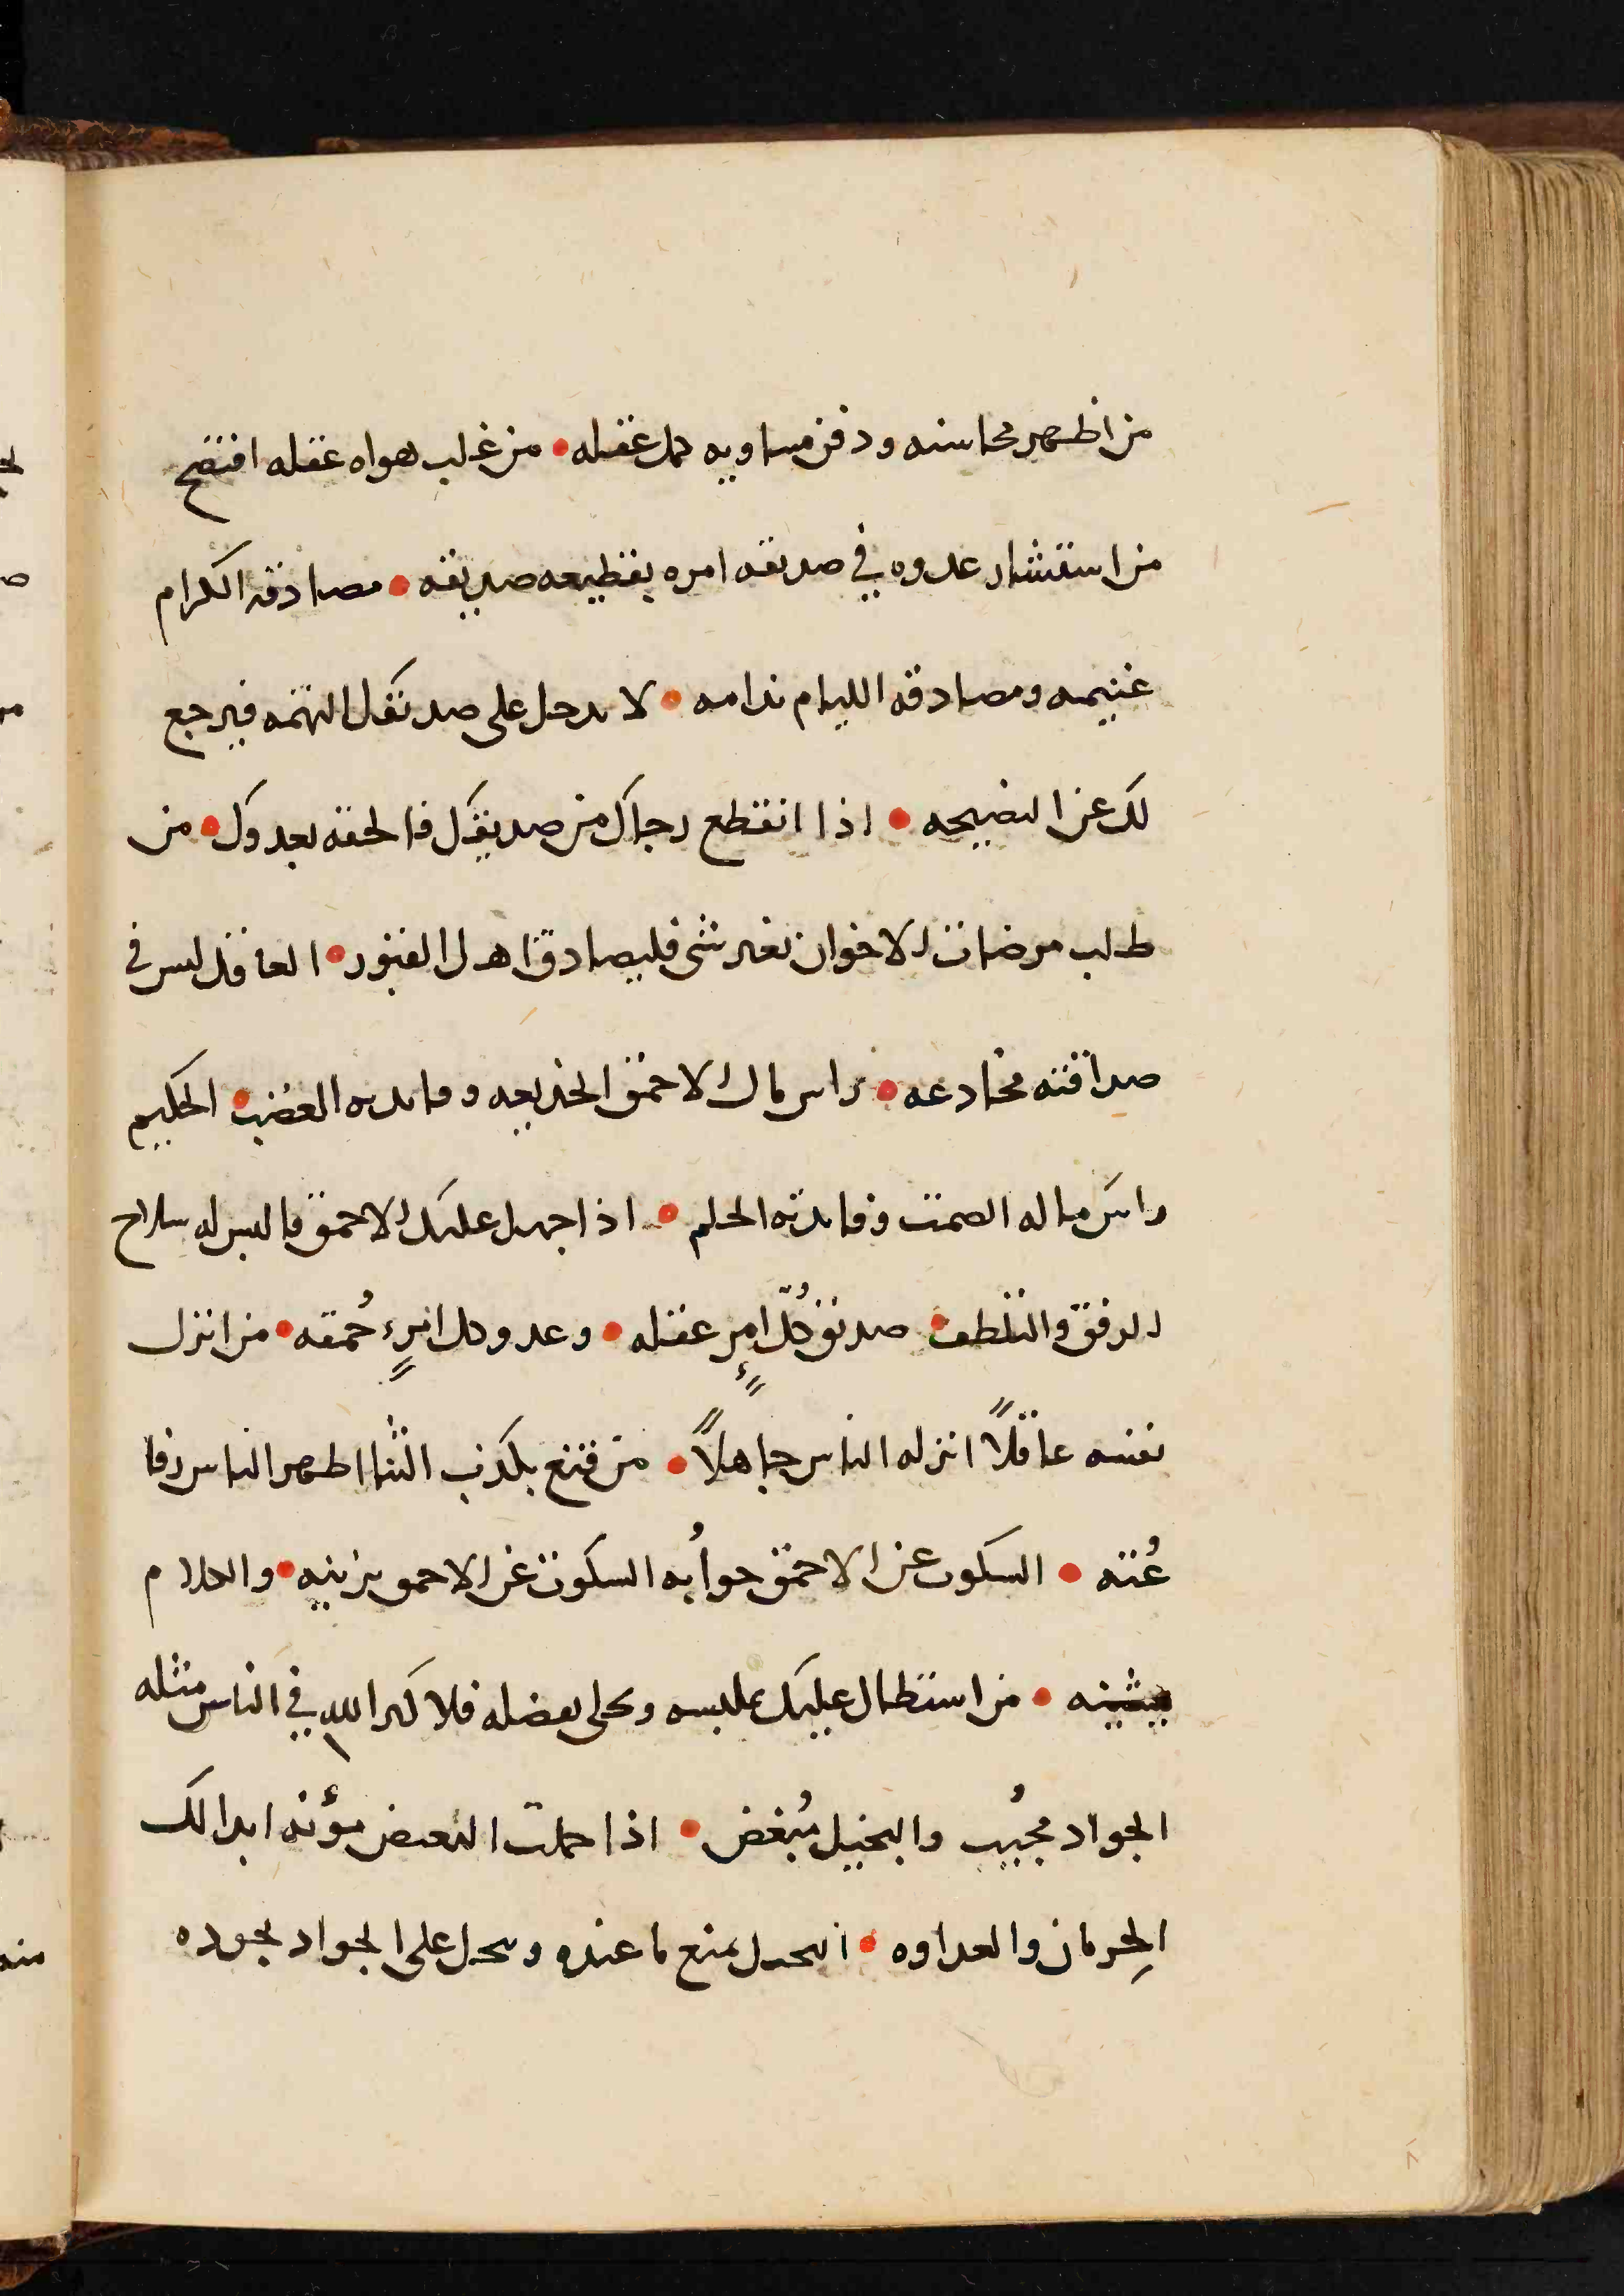 من اظهر محاسنه ودفن مساويه كمل عقله • من غلب هواه عقله افتضح
من استشار عدوه في صديقه امره بقطيعه صديقه • مصادقة الكرام
غنيمه ومصادقه الليام ندامه • لا تدخل على صديقك التهمه فيرجع
لك عن النصيحه • اذا انقطع رجاك من صديقك فالحقه بعدوك • من
طلب مرضات الاخوان بغير شي فليصادق اهل القبور • العاقل ليس في
صداقته مخادعه • راس مال الاحمق الخديعه وفايدته الغضب • الحكيم
راس ماله الصمت وفايدته الحلم • اذا جهل عليك الاحمق فالبس له سلاح
الرفق والتلطف • صديق كُلّ امرٍء عقله • وعدو كل امرٍء حُمقه • من انزل
نفسه عاقلاً انزله الناس جاهلاً • من قنع بكذب الثنا اظهر الناس
عُنته • السكوت عن الاحمق جوابُه السكوت عن الاحمق يزينه • والكلام
يشينه • من استطال عليك بملبسه وبخل بفضله فلا كثر الله في الناس مثله
الجواد مُحَبب والبخيل مُبغض • اذا حملت البغيض مؤنه ابدا لك
الحِرمان والعداوه • البخيل يمنع ما عنده وبخل على الجواد بجوده